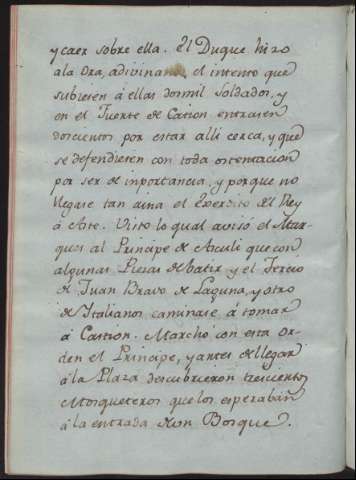 y caer sobre ella. El Duque hizo
a la ora, adivinando el intento que
subiesen á ellas dosmil Soldados, y
en el Fuerte de Castion entrasen
doscientos por estar alli cerca, y que
se defendiesen con toda ostentacion
por ser de inportancia, y porque no
llegase tan aina el Exercito del Rey
á Aste. Visto lo qual avisó el Mar-
ques al Principe de Asculi que con
algunas Piezas de batir y el Tercio
de Juan Bravo de Laguna, y otro
de Italianos caminase á tomar
á Castion. Marchó con esta or-
den el Principe, y antes de llegar
á la Plaza descubrieron trescientos
Mosqueteros que los esperaban
á la entrada de un Bosque.